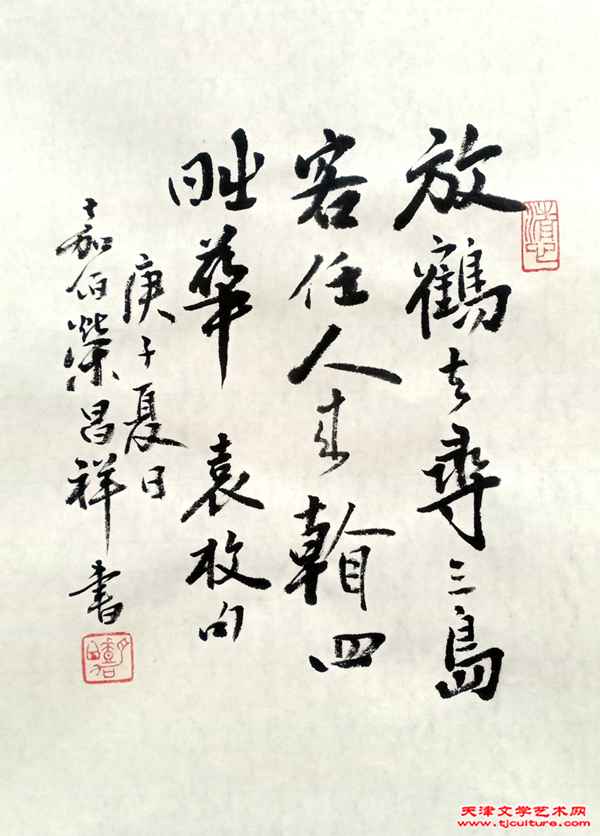 放鶴去尋三島
客任人來看四
時華 袁枚句
庚子夏日
嘉伯榮昌祥書
天津文学艺术网
www.tjculture.com